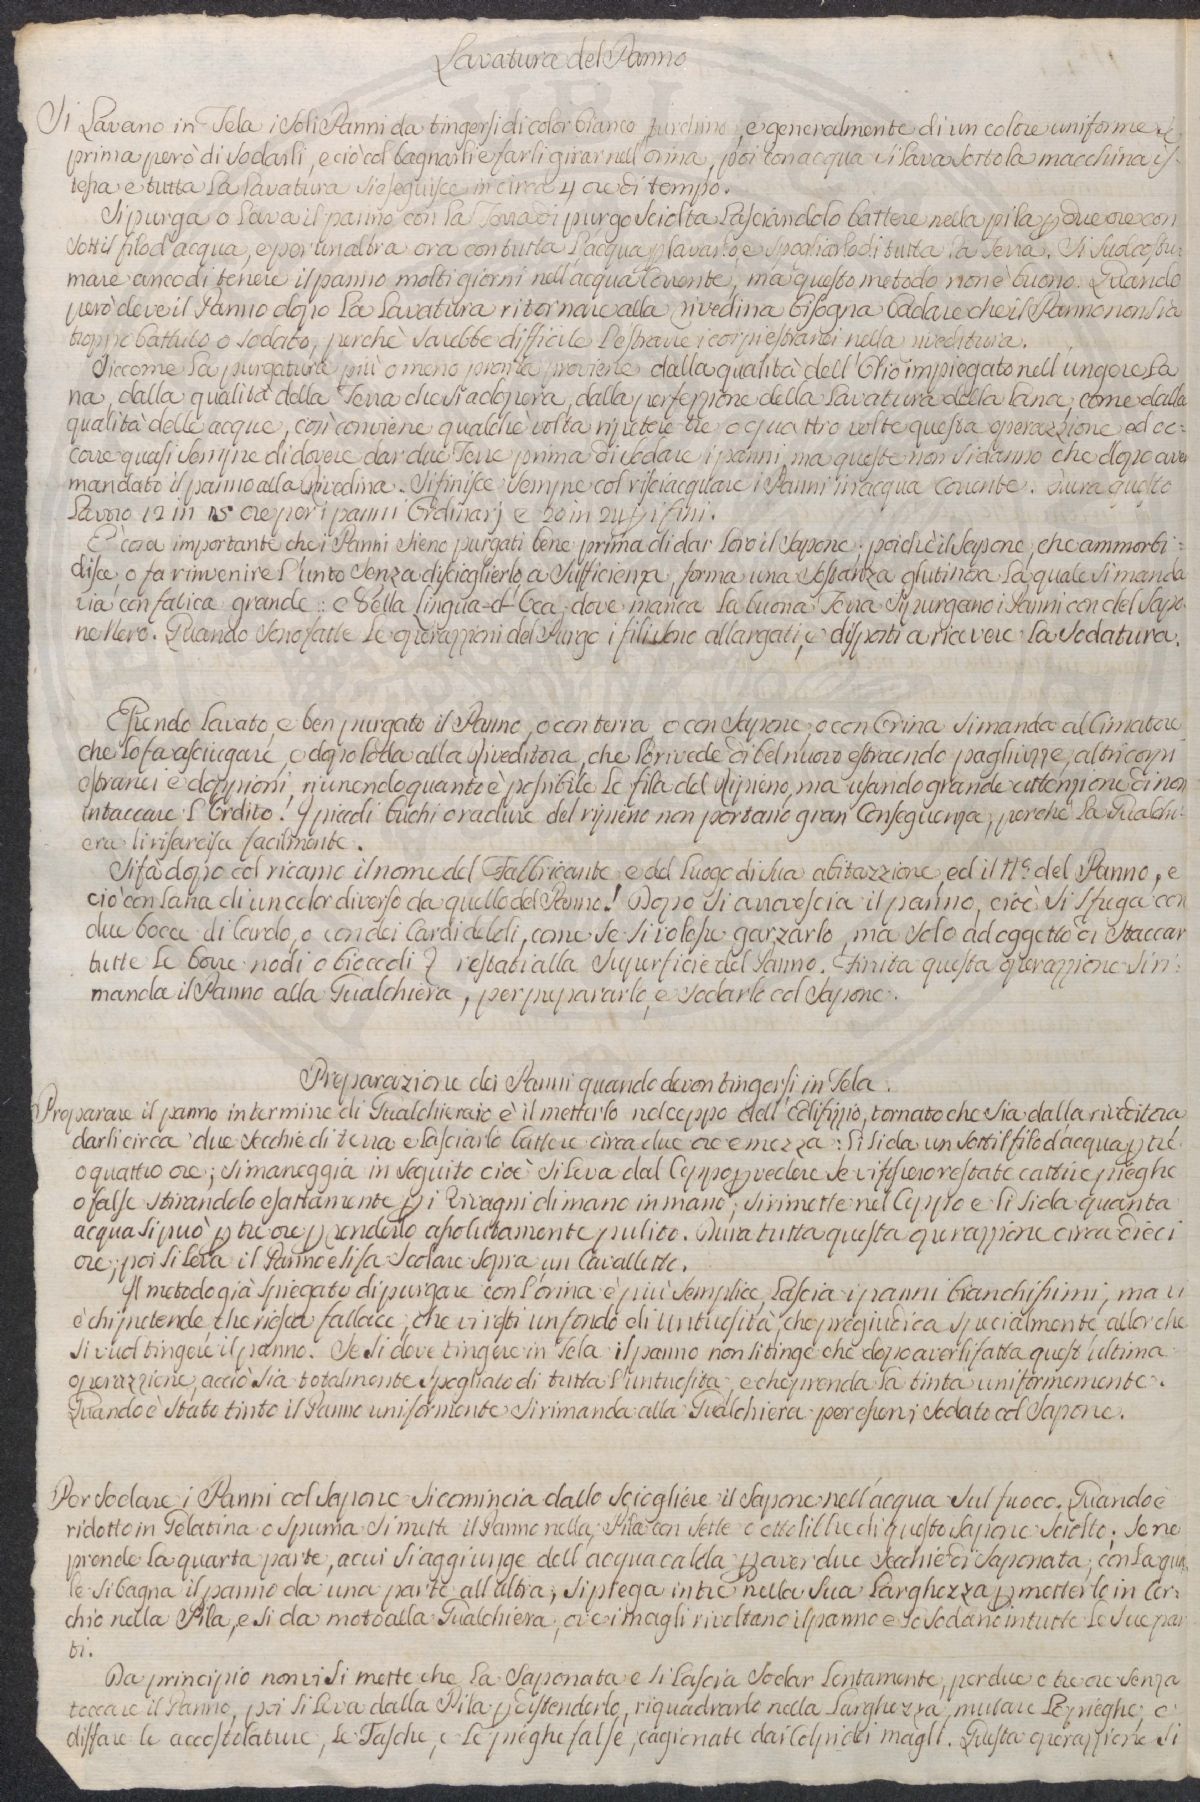 Lavatura del Panno
Si Lavano in Tela i Soli Panni da tingersi di color bianco turchino, e generalmente di un colore uniforme e
prima però di Sodarli, e ciò col bagnarli e farli girar nell'orina, poi con acqua si lava sotto la macchina is=
tessa e tutta La Lavatura si eseguisce in circa 4 ore di tempo.
Si purga o Lava il panno con La Terra di purgo Sciolta Lasciandolo battere nella pila p due ore con
Sottil filo d'acqua, e per un'altra ora con tutta L'acqua p lavarlo e Spogliarlo di tutta La Terra. Si Suol costu=
mare anco di tenere il panno molti giorni nell'acqua Corrente, ma questo metodo non è buono. Quando
però deve il Panno dopo La Lavatura ritornare alla rivedina bisogna badare che il Panno non sia
troppo battuto o Sodato, perchè Sarebbe difficile L'estrarre i corpi estranei nella riveditura.
Siccome La purgatura più o meno pronta proviene dalla qualità dell'Olio impiegato nell'ungere La
na, dalla qualità della Terra che Si adopera, dalla perfezzione della Lavatura della Lana, come dalla
qualità delle acque, così conviene qualche volta ripetere tre o quattro volte questa operazzione ed oc=
corre quasi Sempre di dovere dar due Terre prima di Sodare i panni, ma queste non Si danno che dopo aver
mandato il panno alla Rivedina. Si finisce Sempre col risciacquare i Panni in acqua Corrente. Dura questo
Lavoro 12 in 15 Ore per i panni Ordinarj e 20 in 24 p i fini.
È cosa importante che i Panni Sieno purgati bene prima di dar Loro il Sapone; poichè il Sapone, che ammorbi=
disce, o fa rinvenire L'unto Senza discioglierlo a Sufficienza, forma una Sostanza glutinosa La quale Si manda
via con fatica grande: e Nella Lingua-d'-Oca, dove manca La buona Terra Si purgano i Panni con del Sapo=
ne Nero. Quando Sono fatte Le operazzioni del Purgo i fili Sono allargati, e disposti a ricevere La Sodatura.
Essendo Lavato, e ben purgato il Panno, o con terra o con Sapone, o con Orina Si manda al Cimatore
che Lo fa asciugare, e dopo Lo dà alla Riveditora, che Lo rivede di bel nuovo estraendo pagliuzze, altri corpi
estranei e doppioni, riunendo quanto è possibile Le fila del Ripieno, ma usando grande attenzione di non
intaccare L'Ordito. I piccoli buchi o radure del ripieno non portano gran Conseguenza, perchè La Gualchi=
era li risarcisce facilmente.
Si fà dopo col ricamo il nome del Fabbricante e del Luogo di Sua abitazzione, ed il N.º del Panno, e
ciò con Lana di un color diverso da quello del Panno. Dopo Si arrovescia il panno, cioè Si Sfrega con
due bocce di Cardo, o con dei Cardi deboli, come Se Si volesse garzarlo, ma Solo ad oggetto di Staccar
tutte Le borre nodi o bioccoli restati alla Superficie del Panno. Finita questa operazzione Si ri=
manda il Panno alla Gualchiera, per prepararlo, e Sodarlo col Sapone.
Preparazione dei Panni quando devon tingersi in Tela.
Preparare il panno in termine di Gualchieraio è il metterlo nel ceppo dell'Edifizzio, tornato che Sia dalla riveditora
darli circa due Secchie di terra e Lasciarlo battere circa due ore e mezza: Li Si da un Sottil filo d'acqua p tré
o quattro ore; Si maneggia in Seguito cioè Si Leva dal Ceppo p vedere Se vi fossero restate cattive pieghe
o false Stirandolo esattamente p i Vivagni di mano in mano; Si rimette nel Ceppo e Li Si da quanta
acqua Si può p tre ore p renderlo assolutamente pulito. Dura tutta questa operazzione circa dieci
ore; poi Si Leva il Panno e Si fa Scolare Sopra un Cavalletto.
Il metodo già Spiegato di purgare con L'orina è più Semplice, Lascia i panni bianchissimi, ma vi
è chi pretende che riesca fallace, che vi resti un fondo di Untuosità, che pregiudica Specialmente allor che
Si vuol tingere il panno. Se Si deve tingere in Tela il panno non Si tinge che dopo averli fatta quest'ultima
operazzione, acciò Sia totalmente Spogliato di tutta L'untuosita, e che prenda La tinta uniformemente.
Quando è Stato tinto il Panno uniformente Si rimanda alla Gualchiera per esservi Sodato col Sapone.
Per Sodare i Panni col Sapone Si comincia dallo Sciogliere il Sapone nell'acqua Sul fuoco. Quando è
ridotto in Gelatina o Spuma Si mette il Panno nella Pila con Sette o otto Libbre di questo Sapone Sciolto. Se ne
prende La quarta parte, a cui Si aggiunge dell'acqua calda p aver due Secchie di Saponata, con La qua
le Si bagna il panno da una parte all'altra; Si piega in tre nella Sua Larghezza p metterlo in Cer=
chio nella Pila, e Si da moto alla Gualchiera, ove i magli rivoltano il panno e Lo Sodano in tutte Le Sue par
ti.
Da principio non vi Si mette che La Saponata e Si Lascia Sodar Lentamente, per due o tre ore Senza
toccare il Panno, poi Si Leva dalla Pila p distenderlo, riquadrarlo nella Larghezza, mutare Le pieghe, e
disfare le accostolature, Le Tasche, e Le pieghe false, cagionate dai Colpi dei magli. Questa operazzione Si